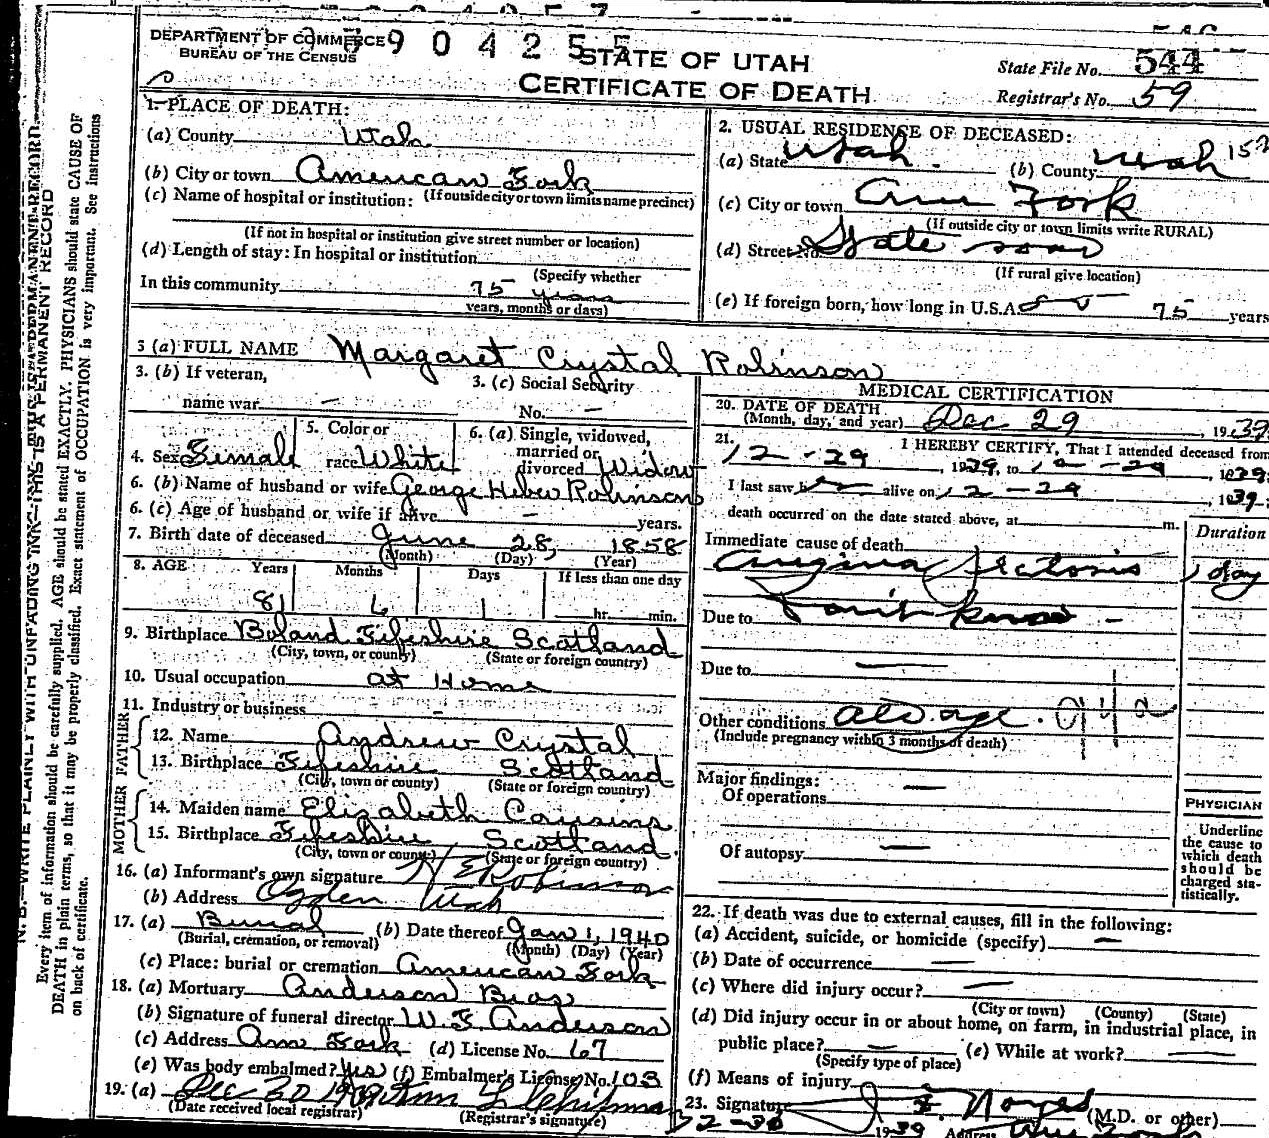 DEPARTMENT OF COMMERCE
BUREAU OF THE CENSUS
3904255
STATE OF UTAH
CERTIFICATE OF DEATH
State File No. 544
Registrar's No. 59
1. PLACE OF DEATH:
(a) County Utah
(b) City or town American Fork
(If outside city or town limits name precinct)
(c) Name of hospital or institution:
(If not in hospital or institution give street number or location)
(d) Length of stay: In hospital or institution
(Specify whether
In this community 75 years
years, months or days)
2. USUAL RESIDENCE OF DECEASED:
(a) State Utah. (b) County Utah
(c) City or town Am Fork
(If outside city or town limits write RURAL)
(d) Street No. State road
(If rural give location)
(e) If foreign born, how long in U.S.A. 75 years
3 (a) FULL NAME Margaret Crystal Robinson
3. (b) If veteran,
name war –
3. (c) Social Security
No. –
4. Sex Female
5. Color or
race White
6. (a) Single, widowed,
married or
divorced Widow
6. (b) Name of husband or wife George Heber Robinson
6. (c) Age of husband or wife if alive – years.
7. Birth date of deceased June 28, 1858
(Month) (Day) (Year)
8. AGE Years Months Days If less than one day
81 6 1 hr. min.
9. Birthplace Boland Fifeshire Scotland
(City, town, or county) (State or foreign country)
10. Usual occupation at Home
11. Industry or business –
FATHER
12. Name Andrew Crystal
13. Birthplace Fifeshire Scotland
(City, town or county) (State or foreign country)
MOTHER
14. Maiden name Elizabeth Cousins
15. Birthplace Fifeshire Scotland.
(City, town or county) (State or foreign country)
16. (a) Informant's own signature H E Robinson
(b) Address Ogden Utah
17. (a) Burial (b) Date thereof Jan 1, 1940
(Burial, cremation, or removal) (Month) (Day) (Year)
(c) Place: burial or cremation American Fork
18. (a) Mortuary Anderson Bros
(b) Signature of funeral director W. F. Anderson
(c) Address Am Fork (d) License No. 67
(e) Was body embalmed? Yes (f) Embalmer's License No. 103
19. (a) Dec 30 1939
(Date received local registrar) (Registrar's signature)
MEDICAL CERTIFICATION
20. DATE OF DEATH
(Month, day, and year) Dec 29, 1939
21. I HEREBY CERTIFY, That I attended deceased from
12-29, 1939, to 12-29, 1939.
I last saw her alive on 12-29, 1939.
death occurred on the date stated above, at m.
Duration
Immediate cause of death
Angina Pectoris 1 day
Due to
Due to –
Other conditions old age.
(Include pregnancy within 3 months of death)
Major findings:
Of operations –
Of autopsy –
PHYSICIAN
Underline
the cause to
which death
should be
charged sta-
tistically.
22. If death was due to external causes, fill in the following:
(a) Accident, suicide, or homicide (specify) –
(b) Date of occurrence –
(c) Where did injury occur? –
(City or town) (County) (State)
(d) Did injury occur in or about home, on farm, in industrial place, in
public place? – (e) While at work? –
(Specify type of place)
(f) Means of injury
23. Signature Noyes (M.D. or other)
12-30 1939 Address Am Fork
N. B.—WRITE PLAINLY WITH UNFADING INK—THIS IS A PERMANENT RECORD
Every item of information should be carefully supplied. AGE should be stated EXACTLY. PHYSICIANS should state CAUSE OF
DEATH in plain terms, so that it may be properly classified. Exact statement of OCCUPATION is very important. See instructions
on back of certificate.